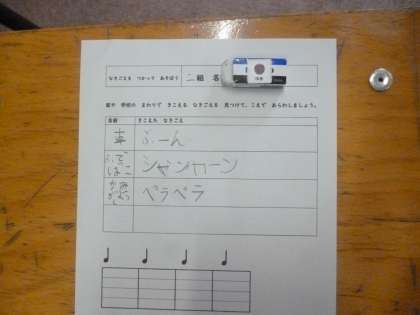 なきごえを つかって あそぼう 二組 名
家や 学校の まわりで きこえる なきごえを 見つけて、こえで あらわしましょう。
名前 きこえた なきごえ
車 ふーん
ふで ばこ シャンカーン
かみ ペラペラ